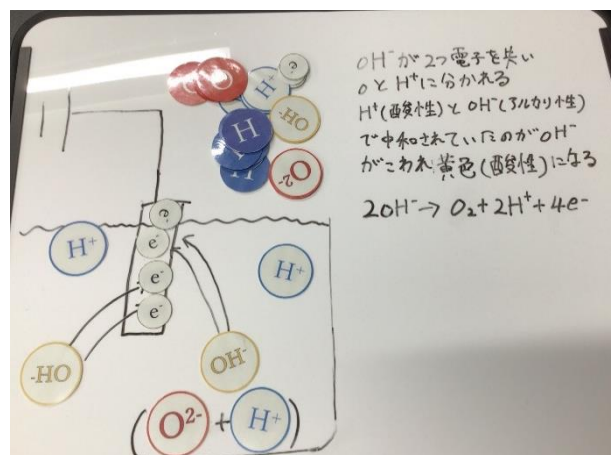 OH⁻が2つ電子を失い
OとH⁺に分かれる
H⁺(酸性)とOH⁻(アルカリ性)
で中和されていたのがOH⁻
がこわれ黄色(酸性)になる
2OH⁻→ O₂+2H⁺+4e⁻
e⁻
H⁺
OH⁻
H
H
O²⁻
e⁻
H⁺
e⁻
H⁺
e⁻
e⁻
OH⁻
OH⁻
(O²⁻ + H⁺)